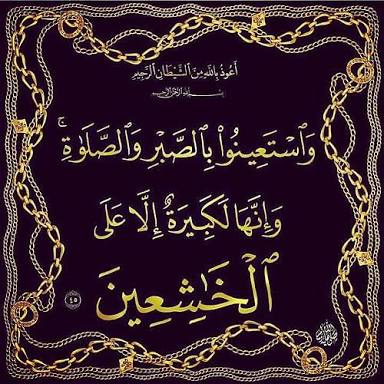 أَعُوذُ بِاللَّهِ مِنَ الشَّيْطَانِ الرَّجِيمِ
بِسْمِ اللَّهِ الرَّحْمَنِ الرَّحِيمِ
وَٱسْتَعِينُوا۟ بِٱلصَّبْرِ وَٱلصَّلَوٰةِ ۚ
وَإِنَّهَا لَكَبِيرَةٌ إِلَّا عَلَى
ٱلْخَٰشِعِينَ ٤٥